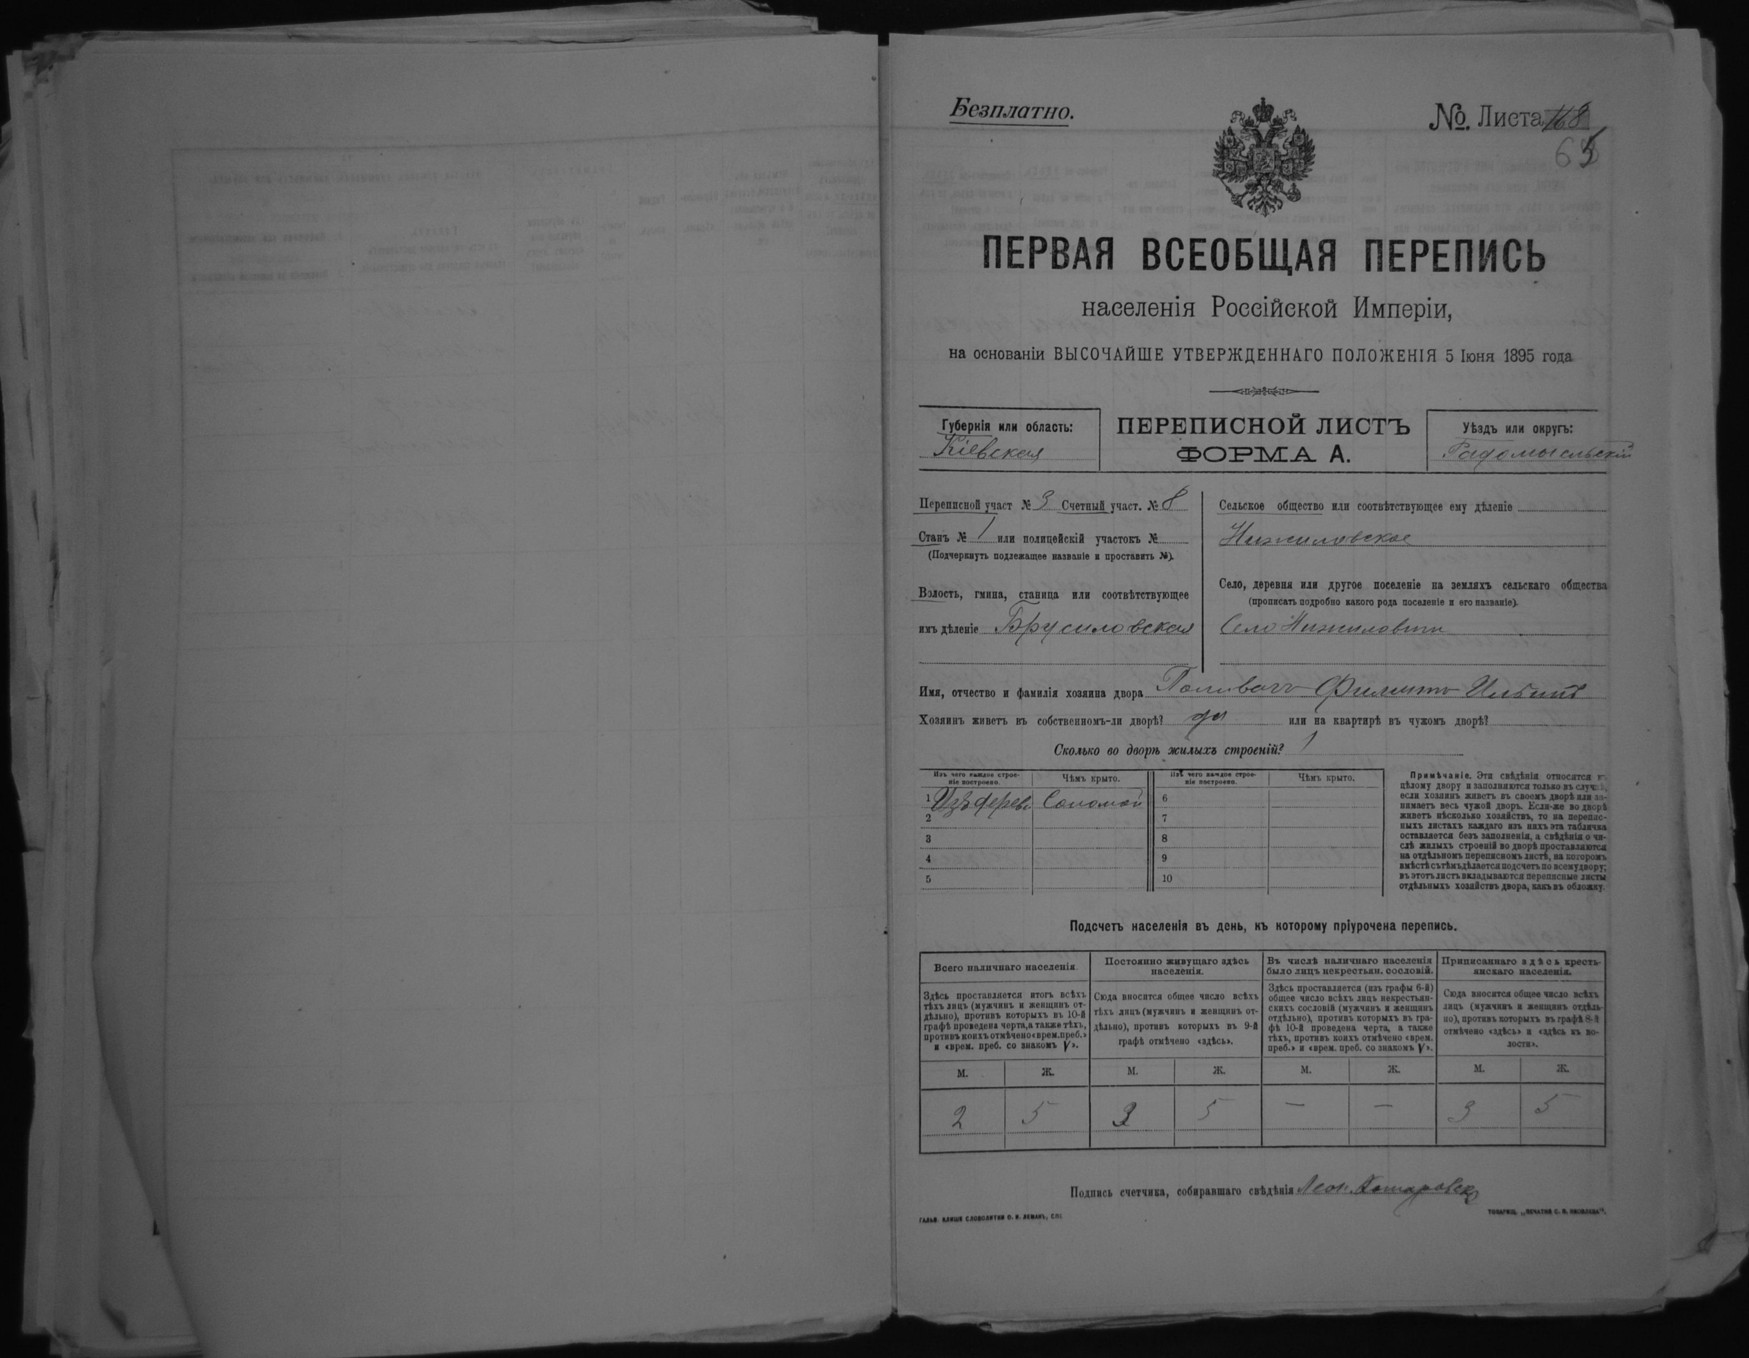 Безплатно.
№ Листа 168
65
ПЕРВАЯ ВСЕОБЩАЯ ПЕРЕПИСЬ
населенія Россійской Имперіи,
на основаніи ВЫСОЧАЙШЕ УТВЕРЖДЕННАГО ПОЛОЖЕНІЯ 5 Іюня 1895 года
Губернія или область:
Кіевская
ПЕРЕПИСНОЙ ЛИСТЪ
ФОРМА А.
Уѣздъ или округъ:
Радомысльскій
Переписной участ № 3 Счетный участ. № 8
Станъ № 1 или полицейскій участокъ №
(Подчеркнуть подлежащее названіе и проставить №).
Волость, гмина, станица или соотвѣтствующее
имъ дѣленіе Брусиловская
Сельское общество или соотвѣтствующее ему дѣленіе
Нижиловское
Село, деревня или другое поселеніе на земляхъ сельскаго общества
(прописать подробно какого рода поселеніе и его названіе).
Село Нижиловичи
Имя, отчество и фамилія хозяина двора Филиппъ
Хозяинъ живетъ въ собственномъ-ли дворѣ? да или на квартирѣ въ чужомъ дворѣ?
Сколько во дворѣ жилыхъ строеній? 1
Изъ чего каждое строе-
ніе построено.
Чѣмъ крыто.
Изъ чего каждое строе-
ніе построено.
Чѣмъ крыто.
1 Изъ дерев. Соломой 6
2 7
3 8
4 9
5 10
Примѣчаніе. Эти свѣдѣнія относятся къ
цѣлому двору и заполняются только въ случаѣ,
если хозяинъ живетъ въ своемъ дворѣ или за-
нимаетъ весь чужой дворъ. Если-же во дворѣ
живетъ нѣсколько хозяйствъ, то на перепис-
ныхъ листахъ каждаго изъ нихъ эта табличка
оставляется безъ заполненія, а свѣдѣнія о чи-
слѣ жилыхъ строеній во дворѣ проставляются
на отдѣльномъ переписномъ листѣ, на которомъ
вмѣстѣ съ тѣмъ дѣлается подсчетъ по всему двору;
въ этотъ листъ вкладываются переписные листы
отдѣльныхъ хозяйствъ двора, какъ въ обложку.
Подсчетъ населенія въ день, къ которому пріурочена перепись.
Всего наличнаго населенія.
Здѣсь проставляется итогъ всѣхъ
тѣхъ лицъ (мужчинъ и женщинъ от-
дѣльно), противъ которыхъ въ 10-й
графѣ проведена черта, а также тѣхъ,
противъ коихъ отмѣчено «врем. преб.»
и «врем. преб. со знакомъ V».
Постоянно живущаго здѣсь
населенія.
Сюда вносится общее число всѣхъ
тѣхъ лицъ (мужчинъ и женщинъ от-
дѣльно), противъ которыхъ въ 9-й
графѣ отмѣчено «здѣсь».
Въ числѣ наличнаго населенія
было лицъ некрестьян. сословій.
Здѣсь проставляется (изъ графы 6-й)
общее число всѣхъ лицъ некрестьян-
скихъ сословій (мужчинъ и женщинъ
отдѣльно), противъ которыхъ въ гра-
фѣ 10-й проведена черта, а также
тѣхъ, противъ коихъ отмѣчено «врем.
преб.» и «врем. преб. со знакомъ V».
Приписаннаго здѣсь кресть-
янскаго населенія.
Сюда вносится общее число всѣхъ
лицъ (мужчинъ и женщинъ отдѣль-
но), противъ которыхъ въ графѣ 8-й
отмѣчено «здѣсь» и «здѣсь въ во-
лости».
М. Ж. М. Ж. М. Ж. М. Ж.
2 5 3 5 — — 3 5
Подпись счетчика, собиравшаго свѣдѣнія Леон.
ГАЛЬВ. КЛИШЕ СЛОВОЛИТНИ О. И. ЛЕМАНЪ, СПБ.
ТОВАРИЩ. „ПЕЧАТНЯ С. П. ЯКОВЛЕВА".